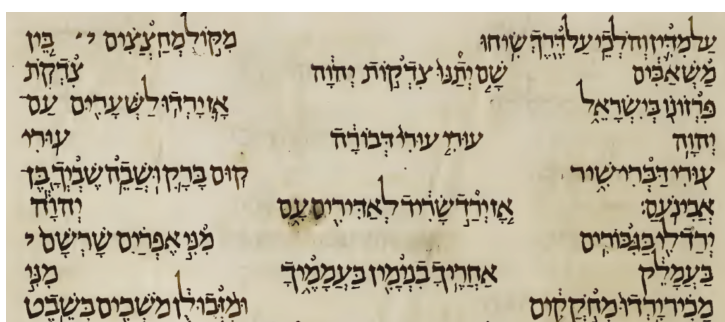 עַל מִדִּין וְהֹלְכֵי עַל דֶּרֶךְ שִׂיחוּ מִקּוֹל מְחַצְצִים י'' בֵּין
מַשְׁאַבִּים שָׁם יְתַנּוּ צִדְקוֹת יְהוָה צִדְקֹת
פִּרְזוֹנוֹ בְּיִשְׂרָאֵל אָז יָרְדוּ לַשְּׁעָרִים עַם
יְהוָה עוּרִי עוּרִי דְּבוֹרָה עוּרִי
עוּרִי דַּבְּרִי שִׁיר קוּם בָּרָק וּשֲׁבֵה שֶׁבְיְךָ בֶּן
אֲבִינֹעַם׃ אָז יְרַד שָׂרִיד לְאַדִּירִים עָם יְהוָה
יְרַד לִי בַּגִּבּוֹרִים מִנִּי אֶפְרַיִם שָׁרְשָׁם י
בַּעֲמָלֵק אַחֲרֶיךָ בִנְיָמִין בַּעֲמָמֶיךָ מִנִּי
מָכִיר יָרְדוּ מְחֹקְקִים וּמִזְּבוּלֻן מֹשְׁכִים בְּשֵׁבֶט